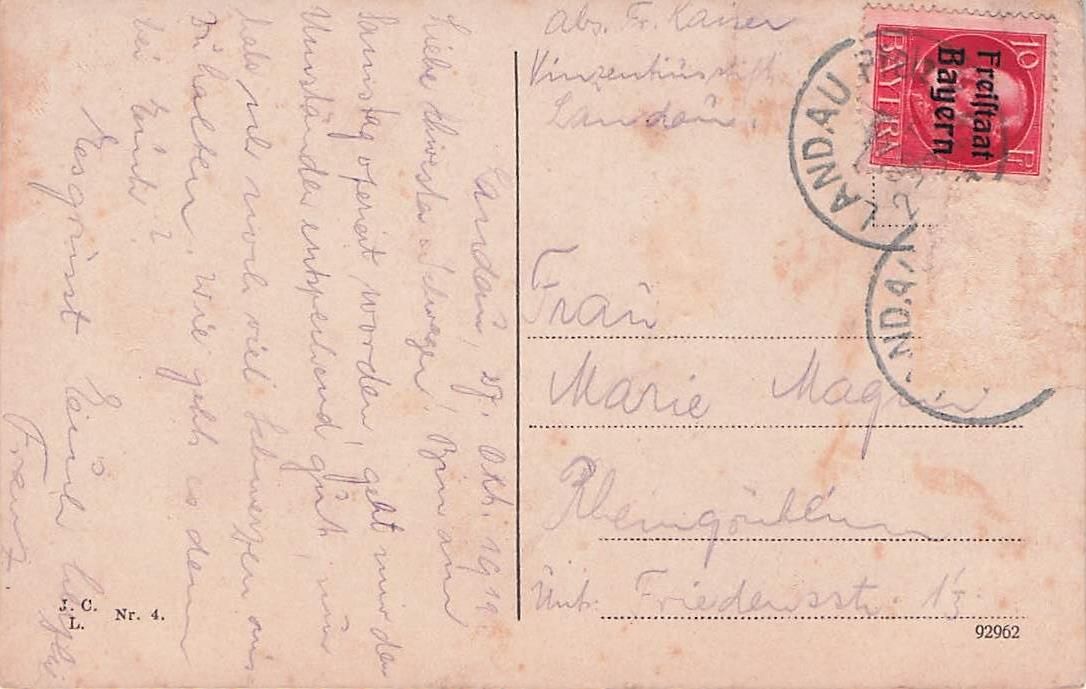 abs. Fr. Kaiser
Vinzentiusstift
Landau.
BAYERN
10
Pf
Freistaat
Bayern
LANDAU
NDAU
Landau, 27. Okt. 1919.
Liebe Schwester u. Schwager! Bin am
Samstag operiert worden, geht mir den
Umständen entsprechend gut, nur
habe ich noch viel Schmerzen aus-
zuhalten. Wie geht es denn
bei Euch?
Es grüsst Euch
Franz
Frau
Marie Magin
Rheingönheim
Unt. Friedensstr. 13
J. C.
L.
Nr. 4.
92962